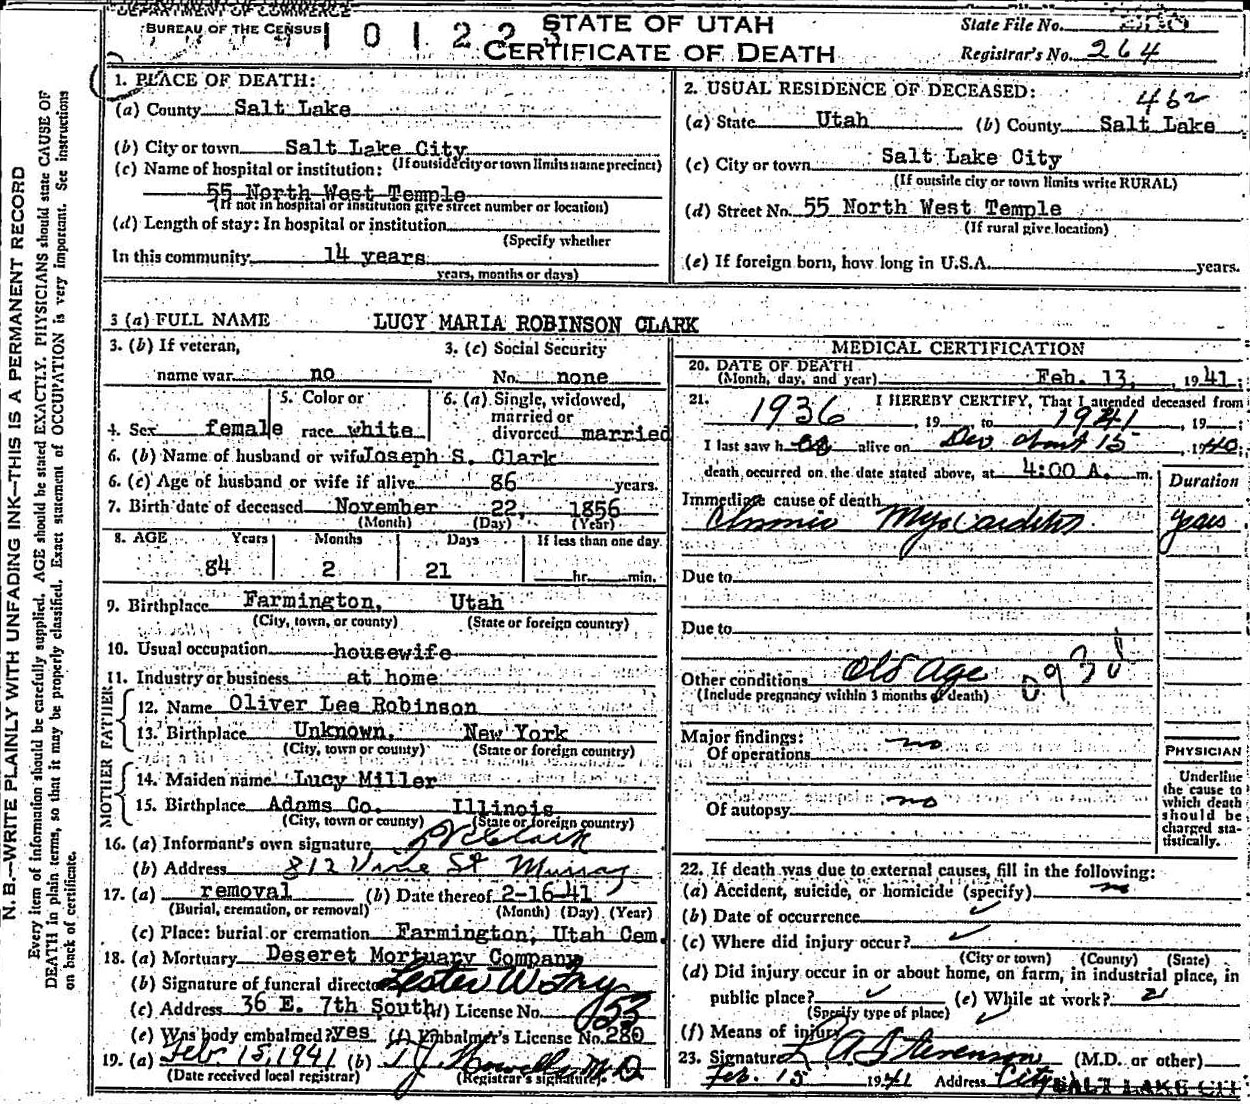 DEPARTMENT OF COMMERCE
BUREAU OF THE CENSUS
STATE OF UTAH
CERTIFICATE OF DEATH
State File No.
Registrar's No. 264
N. B.—WRITE PLAINLY WITH UNFADING INK—THIS IS A PERMANENT RECORD
Every item of information should be carefully supplied. AGE should be stated EXACTLY. PHYSICIANS should state CAUSE OF
DEATH in plain terms, so that it may be properly classified. Exact statement of OCCUPATION is very important. See instructions
on back of certificate.
1. PLACE OF DEATH:
(a) County Salt Lake
(b) City or town Salt Lake City
(If outside city or town limits name precinct)
(c) Name of hospital or institution:
55 North West Temple
(If not in hospital or institution give street number or location)
(d) Length of stay: In hospital or institution
(Specify whether
In this community 14 years
years, months or days)
2. USUAL RESIDENCE OF DECEASED:
462
(a) State Utah (b) County Salt Lake
(c) City or town Salt Lake City
(If outside city or town limits write RURAL)
(d) Street No. 55 North West Temple
(If rural give location)
(e) If foreign born, how long in U.S.A. years.
3 (a) FULL NAME LUCY MARIA ROBINSON CLARK
3. (b) If veteran, 3. (c) Social Security
name war no No. none
4. Sex female 5. Color or race white 6. (a) Single, widowed, married or divorced married
6. (b) Name of husband or wife Joseph S. Clark
6. (c) Age of husband or wife if alive 86 years.
7. Birth date of deceased November 22, 1856
(Month) (Day) (Year)
8. AGE Years Months Days If less than one day
84 2 21 hr. min.
9. Birthplace Farmington, Utah
(City, town, or county) (State or foreign country)
10. Usual occupation housewife
11. Industry or business at home
FATHER
12. Name Oliver Lee Robinson
13. Birthplace Unknown, New York
(City, town or county) (State or foreign country)
MOTHER
14. Maiden name Lucy Miller
15. Birthplace Adams Co. Illinois
(City, town or county) (State or foreign country)
16. (a) Informant's own signature Clark
(b) Address 812 Vine St Murray
17. (a) removal (b) Date thereof 2-16-41
(Burial, cremation, or removal) (Month) (Day) (Year)
(c) Place: burial or cremation Farmington, Utah Cem.
18. (a) Mortuary Deseret Mortuary Company
(b) Signature of funeral director Lester W
(c) Address 36 E. 7th South (d) License No. 153
(e) Was body embalmed? yes (f) Embalmer's License No. 280
19. (a) Febr. 15, 1941 (b) M.D.
(Date received local registrar) (Registrar's signature)
MEDICAL CERTIFICATION
20. DATE OF DEATH
(Month, day, and year) Feb. 13, 1941
21. I HEREBY CERTIFY, That I attended deceased from
1936, 19 to 1941, 19
I last saw h er alive on Dec. about 15 1940;
death occurred on the date stated above, at 4:00 A. m.
Duration
Immediate cause of death
Chronic Myocarditis years
Due to
Due to
Other conditions Old Age
(Include pregnancy within 3 months of death)
Major findings:
Of operations no
Of autopsy no
PHYSICIAN
Underline
the cause to
which death
should be
charged sta-
tistically.
22. If death was due to external causes, fill in the following:
(a) Accident, suicide, or homicide (specify) no
(b) Date of occurrence
(c) Where did injury occur?
(City or town) (County) (State)
(d) Did injury occur in or about home, on farm, in industrial place, in
public place? (e) While at work?
(Specify type of place)
(f) Means of injury
23. Signature L A Stevenson (M.D. or other)
Feb. 15 1941 Address City SALT LAKE CIT